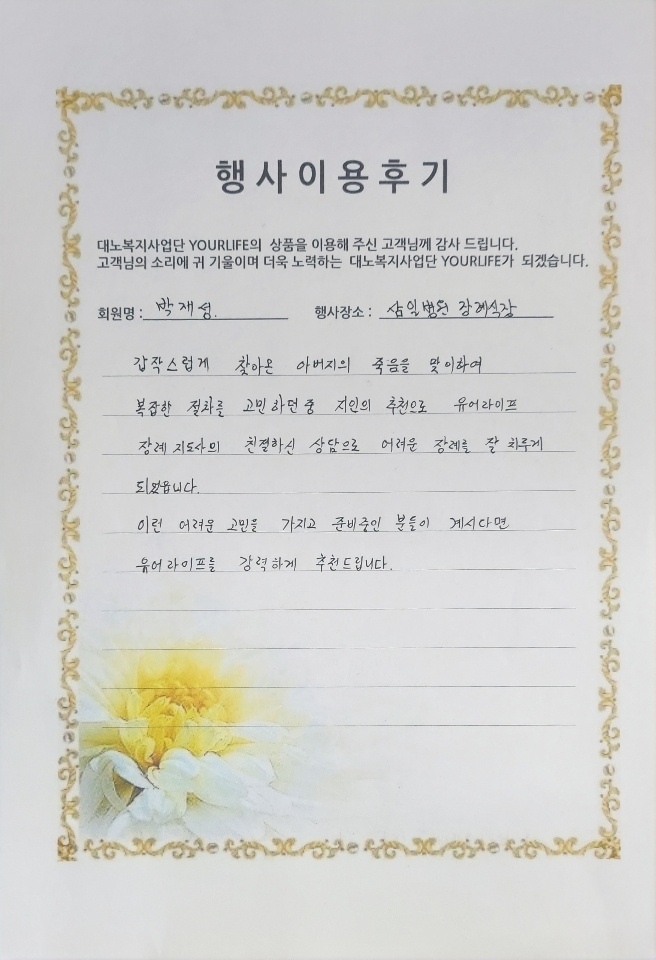 행사이용후기
대노복지사업단 YOURLIFE의 상품을 이용해 주신 고객님께 감사 드립니다.
고객님의 소리에 귀 기울이며 더욱 노력하는 대노복지사업단 YOURLIFE가 되겠습니다.
회원명 : 박재성. 행사장소 : 삼일병원 장례식장
갑작스럽게 찾아온 아버지의 죽음을 맞이하여
복잡한 절차를 고민하던 중 지인의 추천으로 유어라이프
장례지도사의 친절하신 상담으로 어려운 장례를 잘 치루게
되었습니다.
이런 어려운 고민을 가지고 준비중인 분들이 계시다면
유어라이프를 강력하게 추천드립니다.